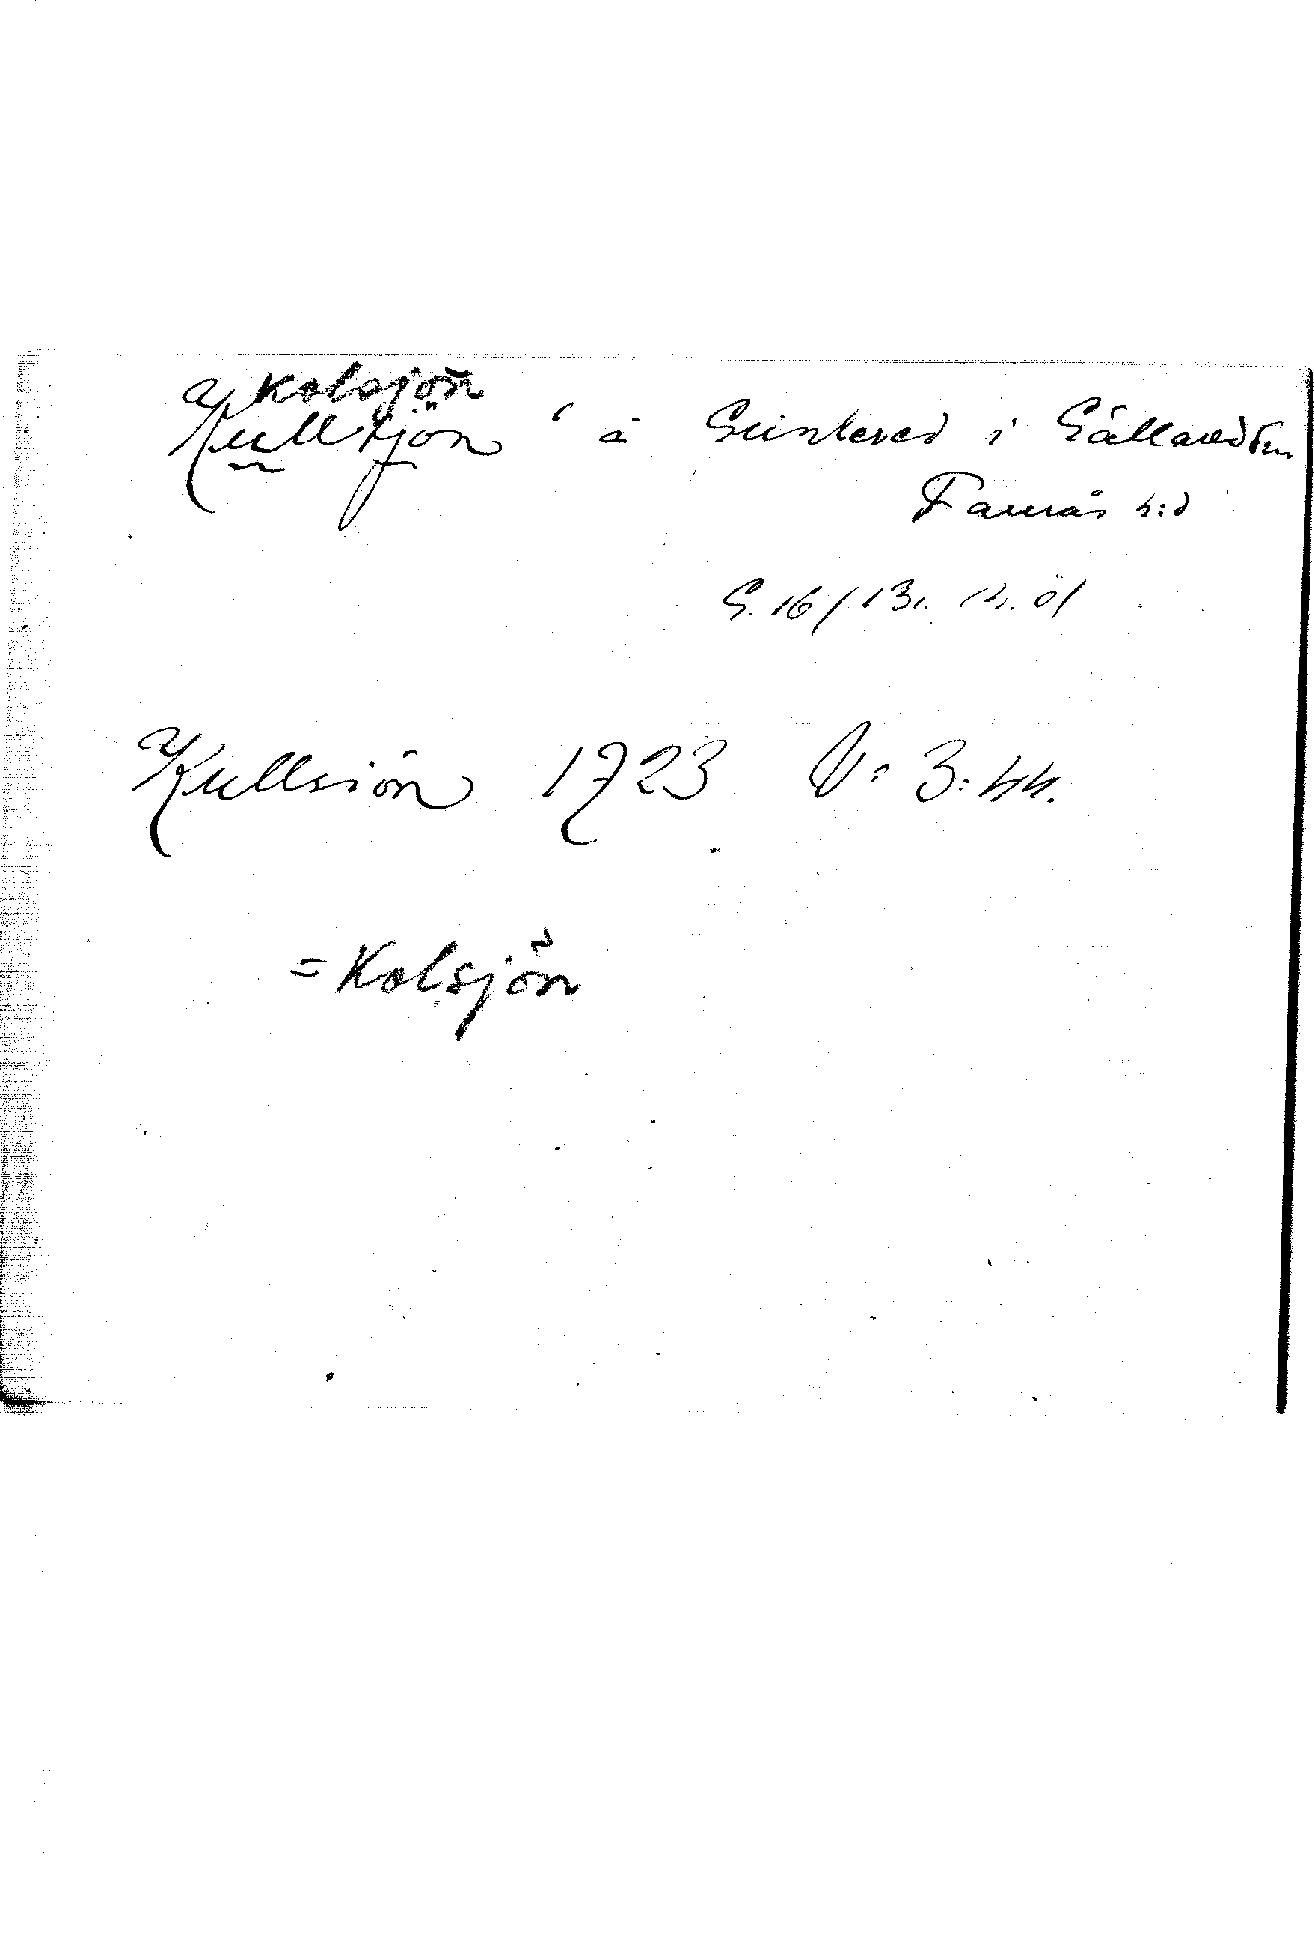 Kolsjön
Kullsjön å Guntered i Gällared sn
Faurås h:d
G. 16/131. 12. öl
Kullsiön 1723 V: 3: 44.
= Kolsjön